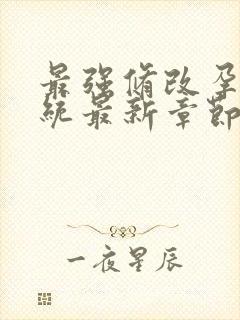 最强脩改孕
统最新章節
一夜星辰